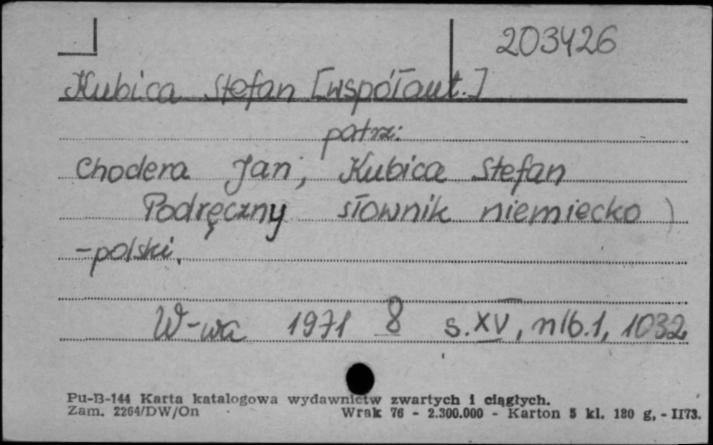 203426
Kubica Stefan [współaut.]
patrz:
Chodera Jan, Kubica Stefan
Podręczny słownik niemiecko
-polski.
W-wa 1971 8 s. XV, nlb. 1, 1032
Pu-B-144 Karta katalogowa wydawnictw zwartych i ciągłych.
Zam. 2264/DW/On Wrak 76 - 2.300.000 - Karton 5 kl. 180 g. - II73.